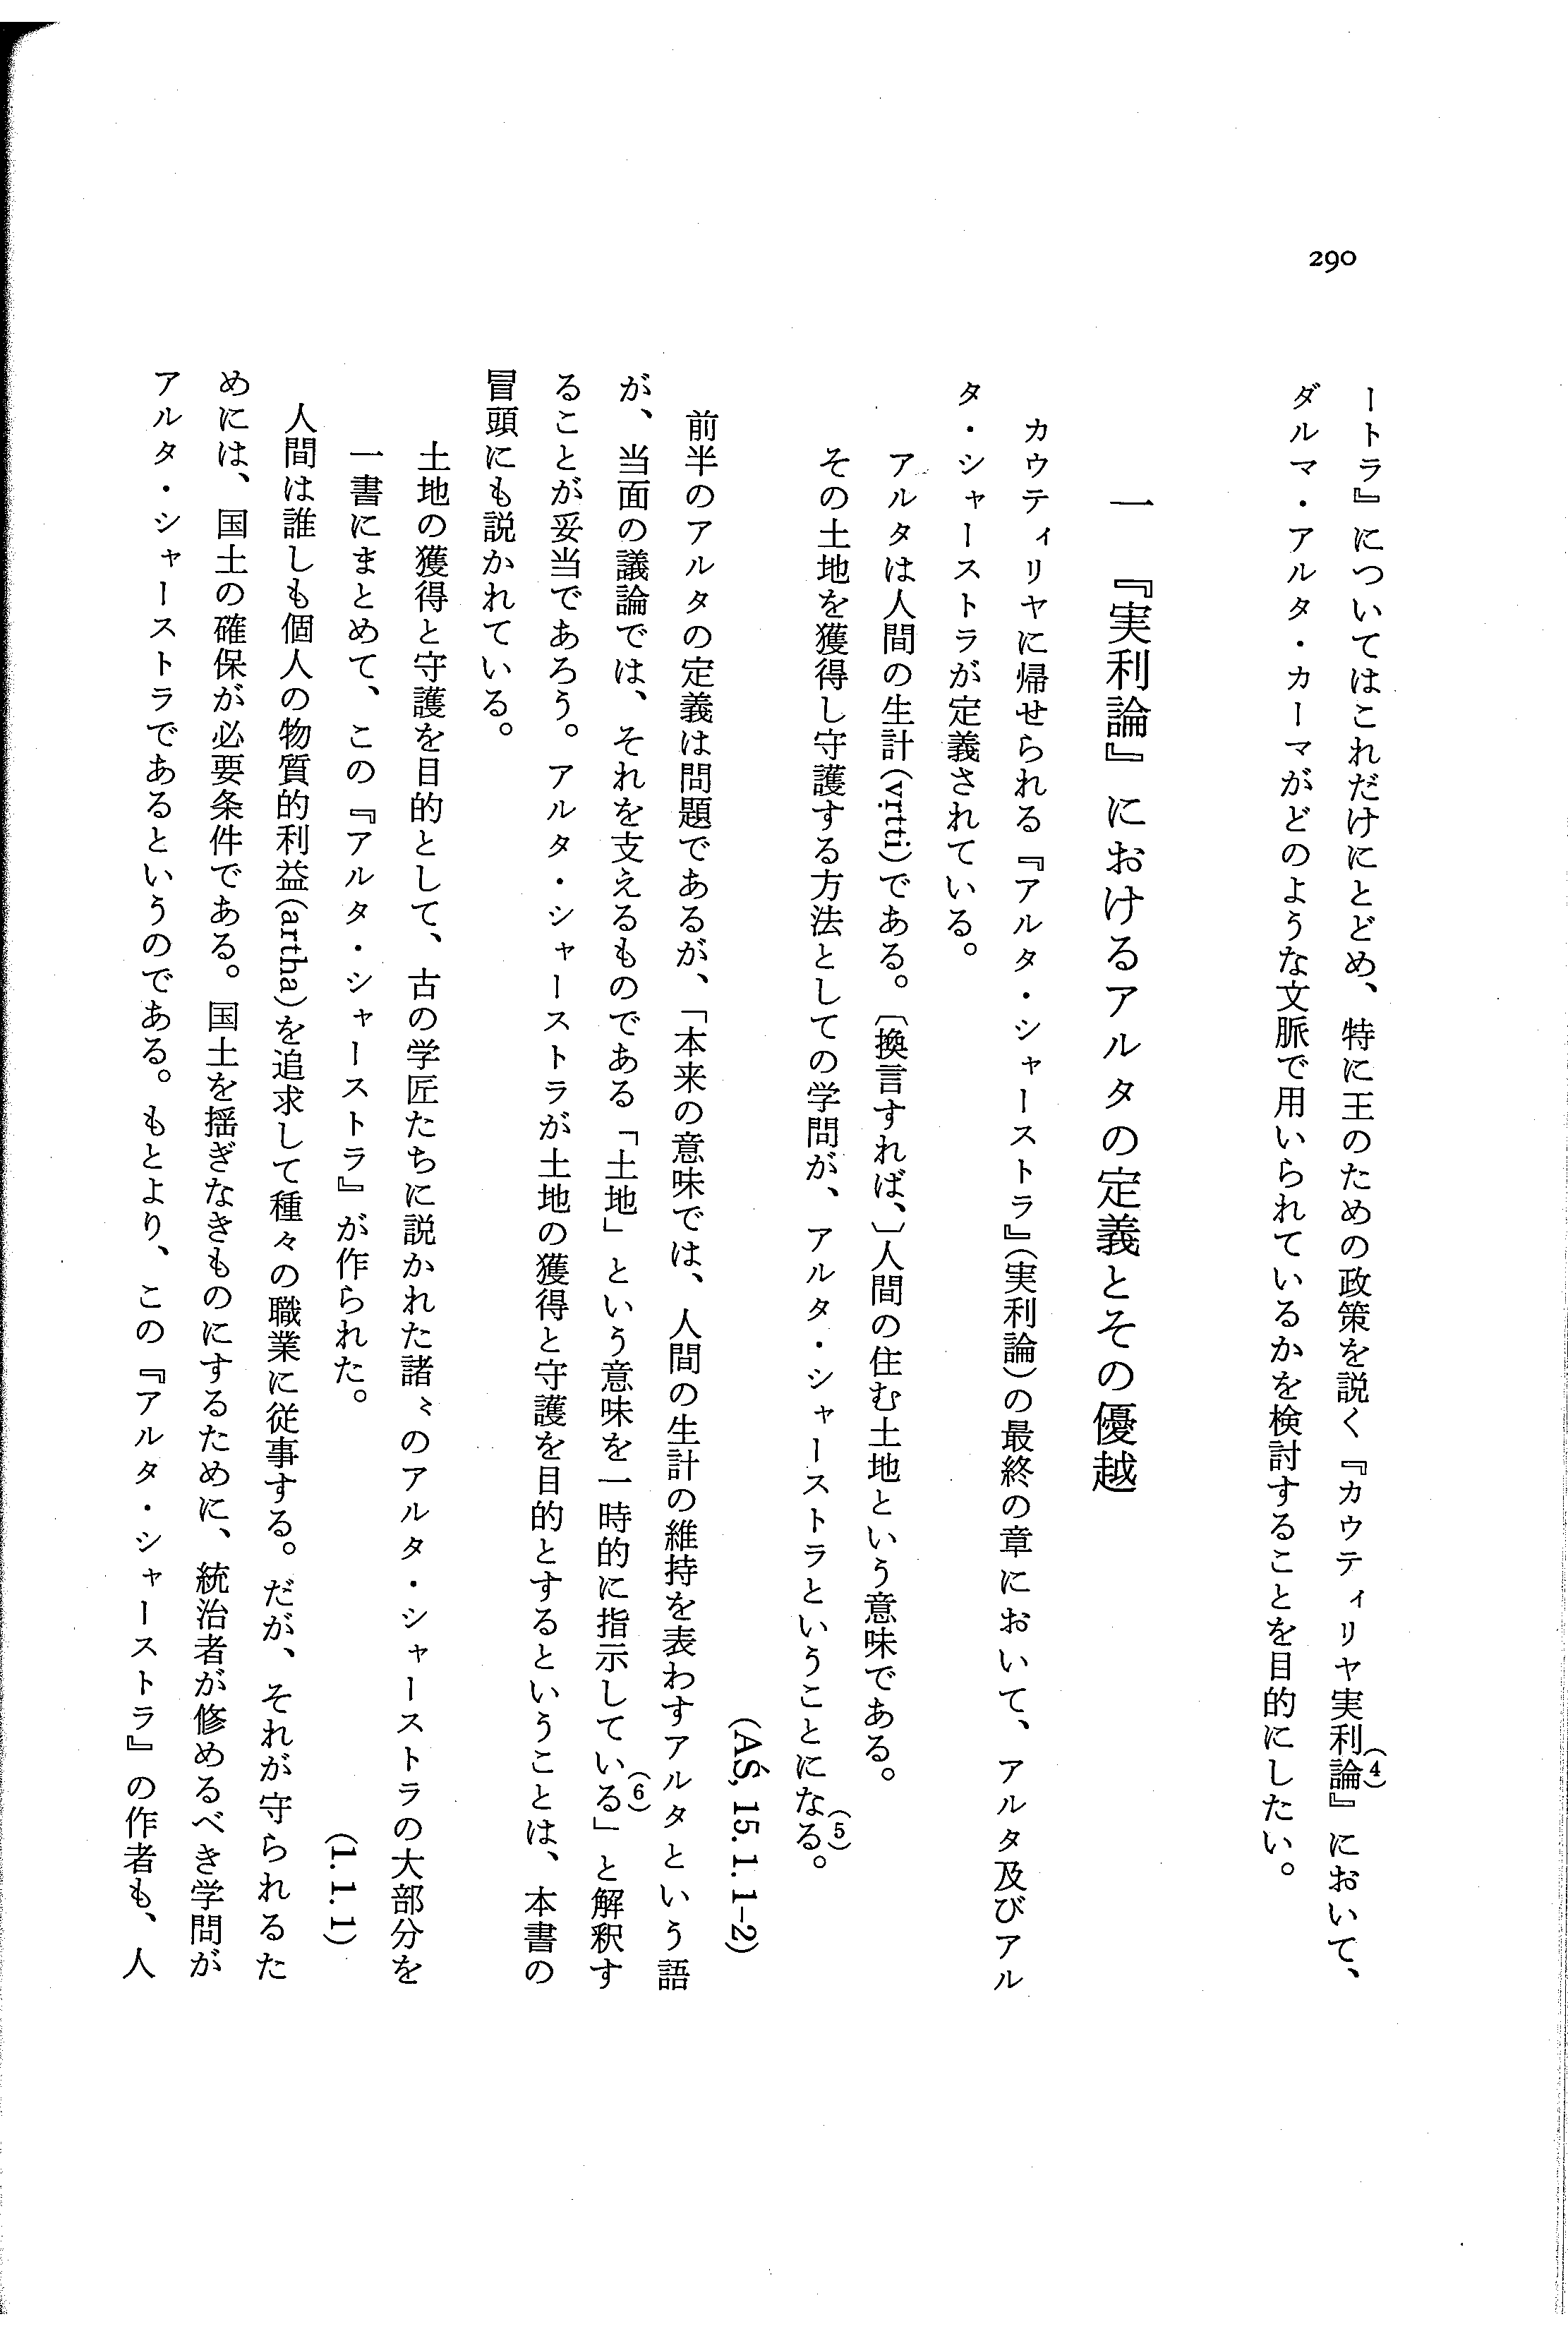 290
ートラ』についてはこれだけにとどめ、特に王のための政策を説く『カウティリヤ実利論(4)』において、
ダルマ・アルタ・カーマがどのような文脈で用いられているかを検討することを目的にしたい。
一　『実利論』におけるアルタの定義とその優越
カウティリヤに帰せられる『アルタ・シャーストラ』(実利論)の最終の章において、アルタ及びアル
タ・シャーストラが定義されている。
アルタは人間の生計(vṛtti)である。〔換言すれば、〕人間の住む土地という意味である。
その土地を獲得し守護する方法としての学問が、アルタ・シャーストラということになる(5)。
(AŚ, 15. 1. 1-2)
前半のアルタの定義は問題であるが、「本来の意味では、人間の生計の維持を表わすアルタという語
が、当面の議論では、それを支えるものである「土地」という意味を一時的に指示している(6)」と解釈す
ることが妥当であろう。アルタ・シャーストラが土地の獲得と守護を目的とするということは、本書の
冒頭にも説かれている。
土地の獲得と守護を目的として、古の学匠たちに説かれた諸〻のアルタ・シャーストラの大部分を
一書にまとめて、この『アルタ・シャーストラ』が作られた。
(1. 1. 1)
人間は誰しも個人の物質的利益(artha)を追求して種々の職業に従事する。だが、それが守られるた
めには、国土の確保が必要条件である。国土を揺ぎなきものにするために、統治者が修めるべき学問が
アルタ・シャーストラであるというのである。もとより、この『アルタ・シャーストラ』の作者も、人